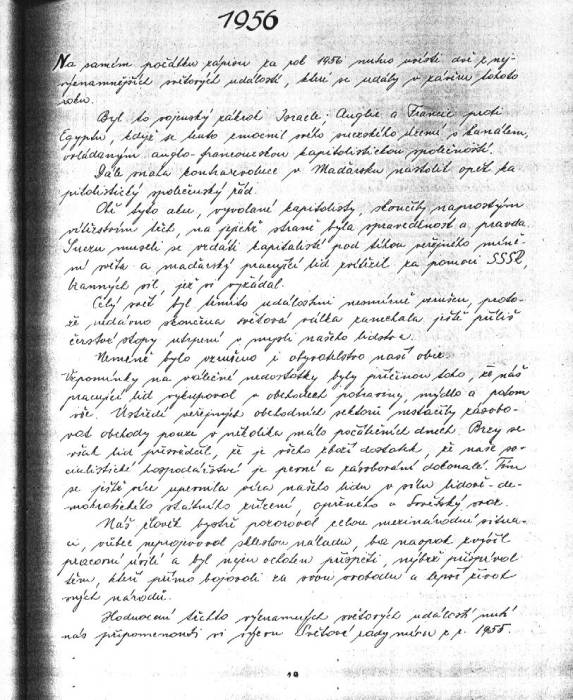 1956
Na samém počátku zápisu za rok 1956 nutno uvésti dvě z nej-
významnějších světových událostí, které se udály v závěru tohoto
roku.
Byl to vojenský zákrok Israele, Anglie a Francie proti
Egyptu, když se tento zmocnil svého suezského území s kanálem,
ovládaným anglo-francouzskou kapitolistickou společností.
Dále snaha kontrarevoluce v Maďarsku nastolit opět ka
pitolistický společenský řád.
Obě tyto akce, vyvolané kapitolisty, skončily naprostým
vítězstvím těch, na jejichž straně byla spravedlnost a pravda.
Suezu museli se vzdáti kapitalisté pod tíhou veřejného míně-
ní světa a maďarský pracující lid zvítězil za pomoci SSSR,
branných sil, jež si vyžádal.
Celý svět byl těmito událostmi nesmírně vzrušen, proto-
že nedávno skončená světová válka zanechala ještě příliš
čerstvé stopy utrpení v mysli našeho lidstva.
Neméně bylo vzrušeno i obyvatelstvo naší obce.
Vzpomínky na válečné nedostatky byly příčinou toho, že náš
pracující lid vykupoval v obchodech potraviny, mýdlo a potom
vše. Ústředí veřejných obchodních sektorů nestačily zásobo-
vat obchody pouze v několika málo počátečních dnech. Brzy se
však lid přesvědčil, že je všeho zboží dostatek, že naše so-
cialistické hospodářství je pevné a zásobování dokonalé. Tím
se ještě více upevnila víra našeho lidu v sílu lidově-de-
mokratického státního zřízení, opřeného o Sovětský svaz.
Náš člověk bystře pozoroval celou mezinárodní situa-
ci, vůbec nepropadal skleslou náladu, ba naopak zvýšil
pracovní úsilí a byl nejen ochoten přispěti, nýbrž přispíval
těm, kteří přímo bojovali za svou svobodu a lepší život
svých národů.
Hodnocení těchto významných světových událostí nutí
nás připomenouti si výzvu Světové rady míru z r. 1955.